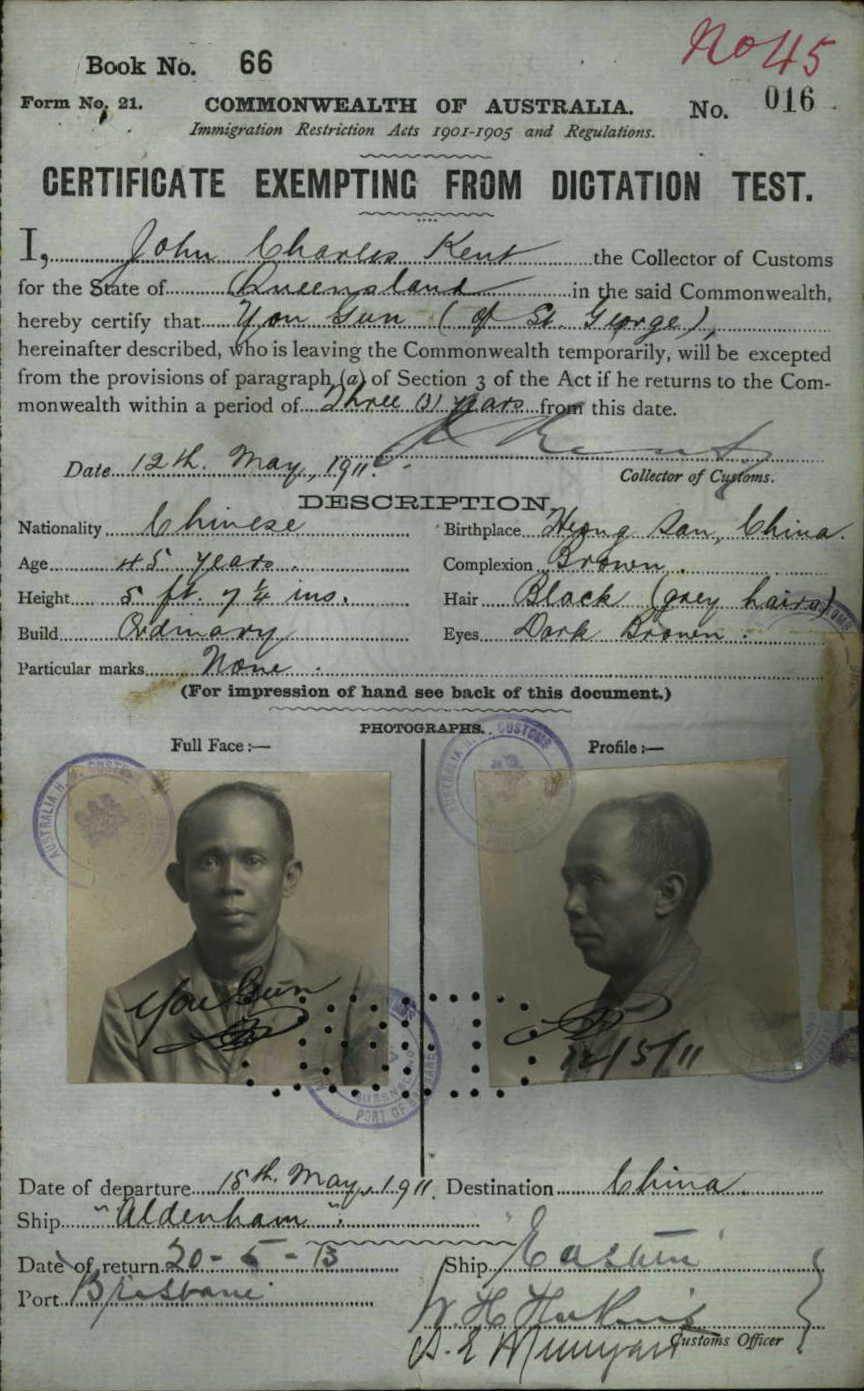 No 45
Book No. 66
Form No. 21. COMMONWEALTH OF AUSTRALIA. No. 016
Immigration Restriction Acts 1901-1905 and Regulations.
CERTIFICATE EXEMPTING FROM DICTATION TEST.
I, John Charles Kent the Collector of Customs
for the State of Queensland in the said Commonwealth,
hereby certify that Yon Gun (of St. George),
hereinafter described, who is leaving the Commonwealth temporarily, will be excepted
from the provisions of paragraph (a) of Section 3 of the Act if he returns to the Com-
monwealth within a period of Three (3) years from this date.
Date 12th. May, 1911.
Collector of Customs.
DESCRIPTION
Nationality Chinese Birthplace Heong San, China.
Age 45 years. Complexion Brown.
Height 5 ft. 7¼ ins. Hair Black (grey hairs)
Build Ordinary Eyes Dark Brown.
Particular marks None.
(For impression of hand see back of this document.)
PHOTOGRAPHS.
Full Face:— Profile:—
AUSTRALIA H. CUSTOMS
Gun
12/5/11
PORT OF
Date of departure 15th. May, 1911. Destination China.
Ship "Aldenham".
Date of return 20-5-13 Ship Eastern
Port Brisbane
W. H.
Customs Officer